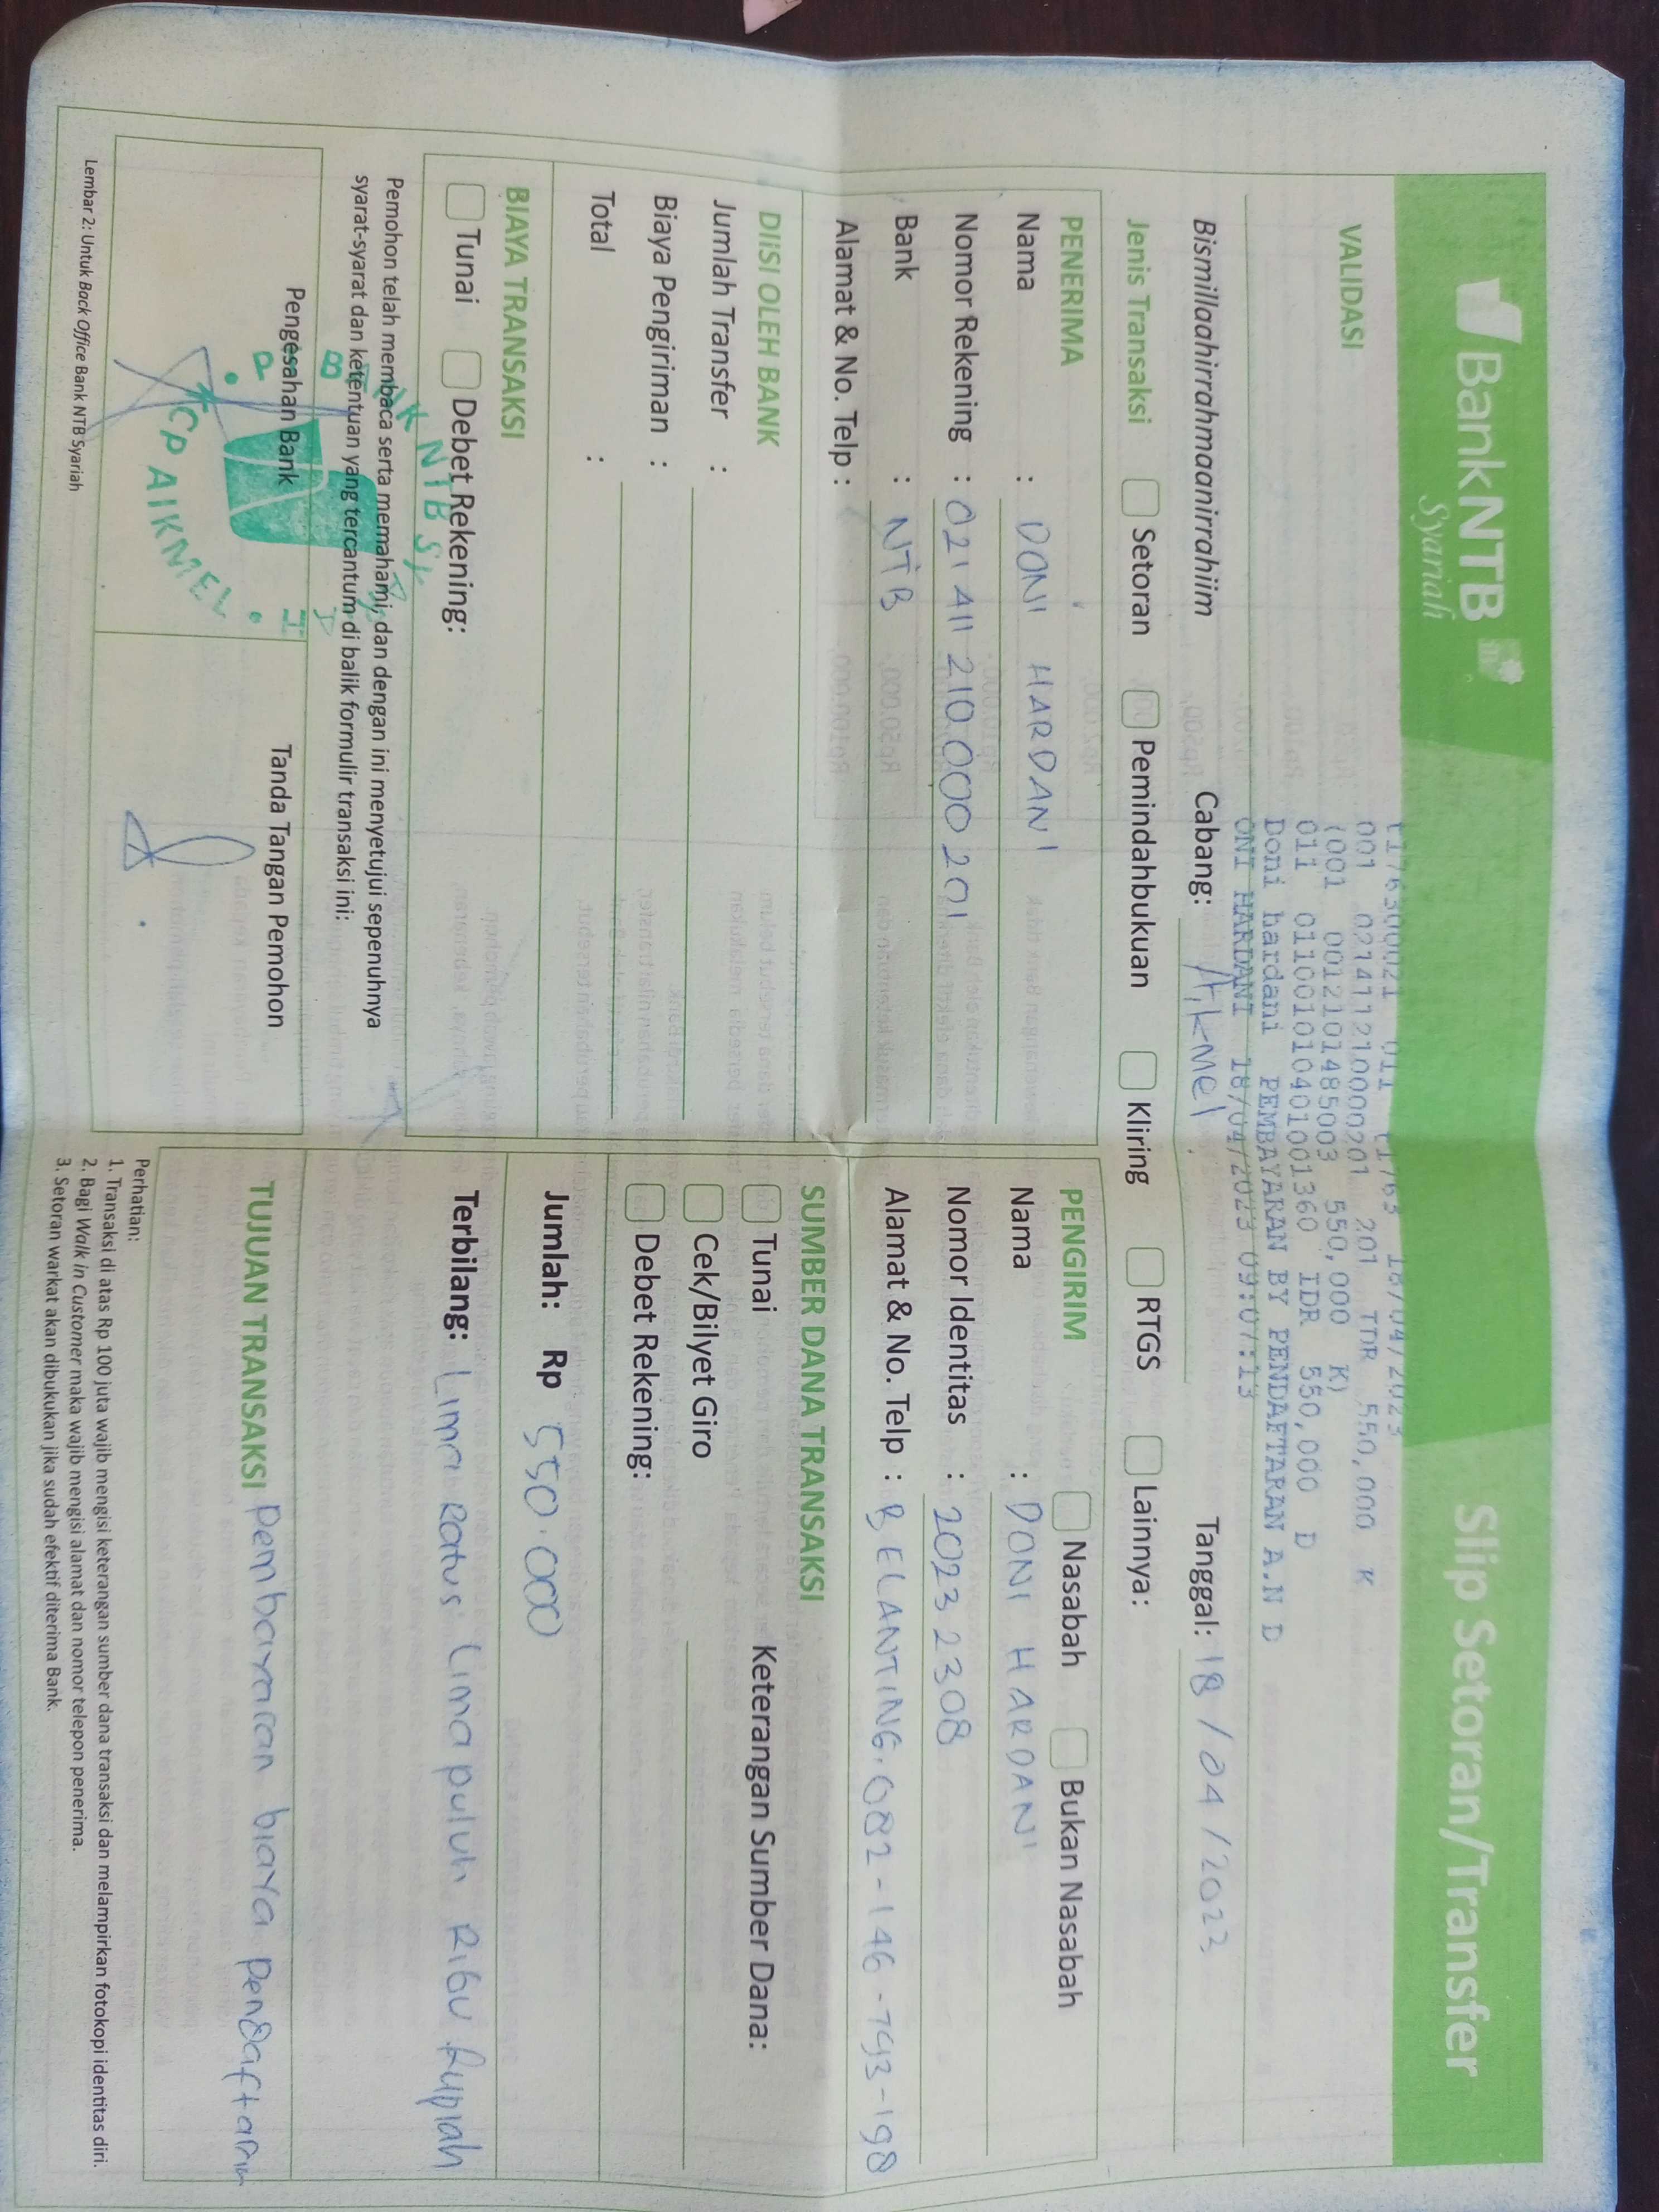 BankNTB
Syariah
Slip Setoran/Transfer
VALIDASI
t1763000021 011 t1763 18/04/2023
001 021411210000201 201 IDR 550,000 K
(001 0012101485003 550,000 K)
011 011001010401001360 IDR 550,000 D
Doni hardani PEMBAYARAN BY PENDAFTARAN A.N D
ONI HARDANI 18/04/2023 09:07:13
Bismillaahirrahmaanirrahiim
Cabang: Aikmel
Tanggal: 18/04/2023
Jenis Transaksi
Setoran
Pemindahbukuan
Kliring
RTGS
Lainnya:
PENERIMA
Nama : DONI HARDANI
Nomor Rekening : 021 411 210 000 201
Bank : NTB
Alamat & No. Telp :
PENGIRIM
Nasabah
Bukan Nasabah
Nama : DONI HARDANI
Nomor Identitas : 2023 2308
Alamat & No. Telp : BELANTING. 082-146-793-198
DIISI OLEH BANK
Jumlah Transfer :
Biaya Pengiriman :
Total :
SUMBER DANA TRANSAKSI
Tunai
Keterangan Sumber Dana:
Cek/Bilyet Giro
Debet Rekening:
BIAYA TRANSAKSI
Tunai
Debet Rekening:
Jumlah: Rp 550.000
Terbilang: Lima Ratus Lima puluh Ribu Rupiah
Pemohon telah membaca serta memahami, dan dengan ini menyetujui sepenuhnya
syarat-syarat dan ketentuan yang tercantum di balik formulir transaksi ini:
Pengesahan Bank
Tanda Tangan Pemohon
BANK NTB Sy
CP AIKMEL
TUJUAN TRANSAKSI Pembayaran biaya pendaftaran
Lembar 2: Untuk Back Office Bank NTB Syariah
Perhatian:
1. Transaksi di atas Rp 100 juta wajib mengisi keterangan sumber dana transaksi dan melampirkan fotokopi identitas diri.
2. Bagi Walk in Customer maka wajib mengisi alamat dan nomor telepon penerima.
3. Setoran warkat akan dibukukan jika sudah efektif diterima Bank.